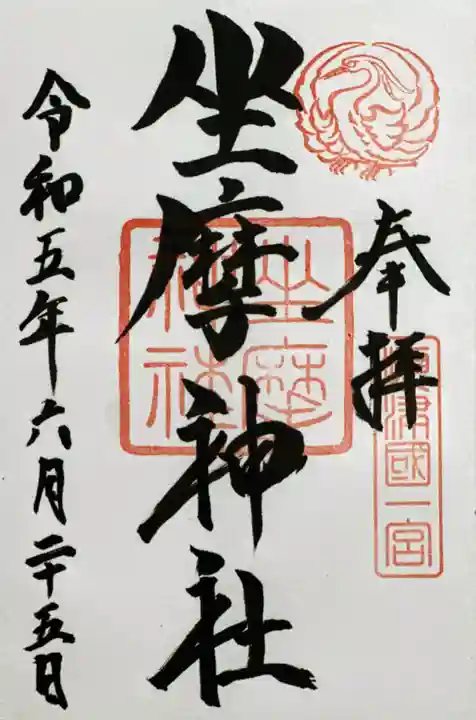 奉拝
摂津國一宮
坐摩神社
坐摩神社
令和五年六月二十五日